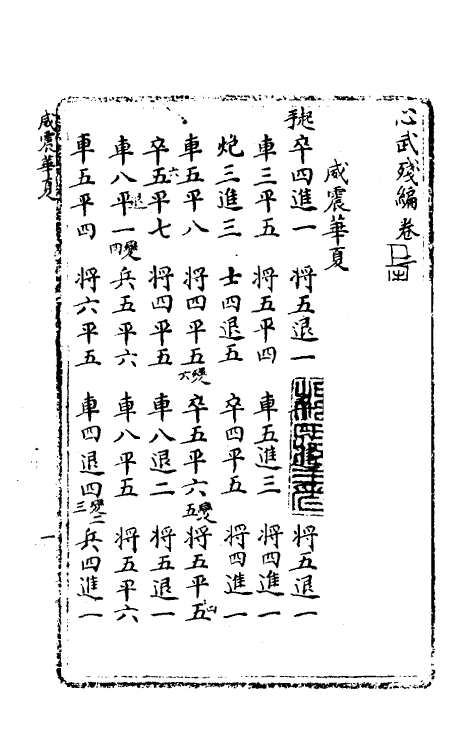 心武殘編卷
威震華夏
起手 卒四進一 將五退一 將五退一
車三平五 將五平四 車五進三 將四進一
炮三進三 士四退五 卒四平五 將四進一
車五平八 將四平五 變六 卒五平六 變五 將五平五 四
卒五平七 六 將四平五 車八退二 將五退一
車八平一 退 變四 兵五平六 車八平五 將五平六
車五平四 將六平五 車四退四 變二三 兵四進一
威震華夏
一